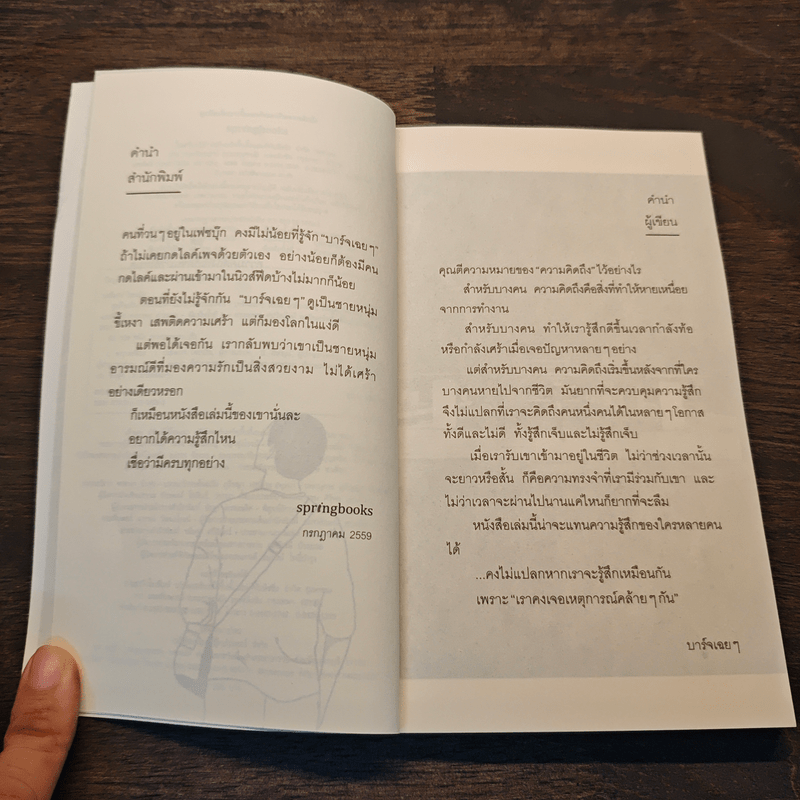 คำนำ
สำนักพิมพ์
คนที่วนๆ อยู่ในเฟซบุ๊ก คงมีไม่น้อยที่รู้จัก "บาร์จเฉยๆ"
ถ้าไม่เคยกดไลค์เพจด้วยตัวเอง อย่างน้อยก็ต้องมีคน
กดไลค์และผ่านเข้ามาในนิวส์ฟีดบ้างไม่มากก็น้อย
ตอนที่ยังไม่รู้จักกัน "บาร์จเฉยๆ" ดูเป็นชายหนุ่ม
ขี้เหงา เสพติดความเศร้า แต่ก็มองโลกในแง่ดี
แต่พอได้เจอกัน เรากลับพบว่าเขาเป็นชายหนุ่ม
อารมณ์ดีที่มองความรักเป็นสิ่งสวยงาม ไม่ได้เศร้า
อย่างเดียวหรอก
ก็เหมือนหนังสือเล่มนี้ของเขานั่นละ
อยากได้ความรู้สึกไหน
เชื่อว่ามีครบทุกอย่าง
springbooks
กรกฎาคม 2559
คำนำ
ผู้เขียน
คุณตีความหมายของ "ความคิดถึง" ไว้อย่างไร
สำหรับบางคน ความคิดถึงคือสิ่งที่ทำให้หายเหนื่อย
จากการทำงาน
สำหรับบางคน ทำให้เรารู้สึกดีขึ้นเวลากำลังท้อ
หรือกำลังเศร้าเมื่อเจอปัญหาหลายๆ อย่าง
แต่สำหรับบางคน ความคิดถึงเริ่มขึ้นหลังจากที่ใคร
บางคนหายไปจากชีวิต มันยากที่จะควบคุมความรู้สึก
จึงไม่แปลกที่เราจะคิดถึงคนหนึ่งคนได้ในหลายๆ โอกาส
ทั้งดีและไม่ดี ทั้งรู้สึกเจ็บและไม่รู้สึกเจ็บ
เมื่อเรารับเขาเข้ามาอยู่ในชีวิต ไม่ว่าช่วงเวลานั้น
จะยาวหรือสั้น ก็คือความทรงจำที่เรามีร่วมกับเขา และ
ไม่ว่าเวลาจะผ่านไปนานแค่ไหนก็ยากที่จะลืม
หนังสือเล่มนี้น่าจะแทนความรู้สึกของใครหลายคน
ได้
...คงไม่แปลกหากเราจะรู้สึกเหมือนกัน
เพราะ "เราคงเจอเหตุการณ์คล้ายๆ กัน"
บาร์จเฉยๆ